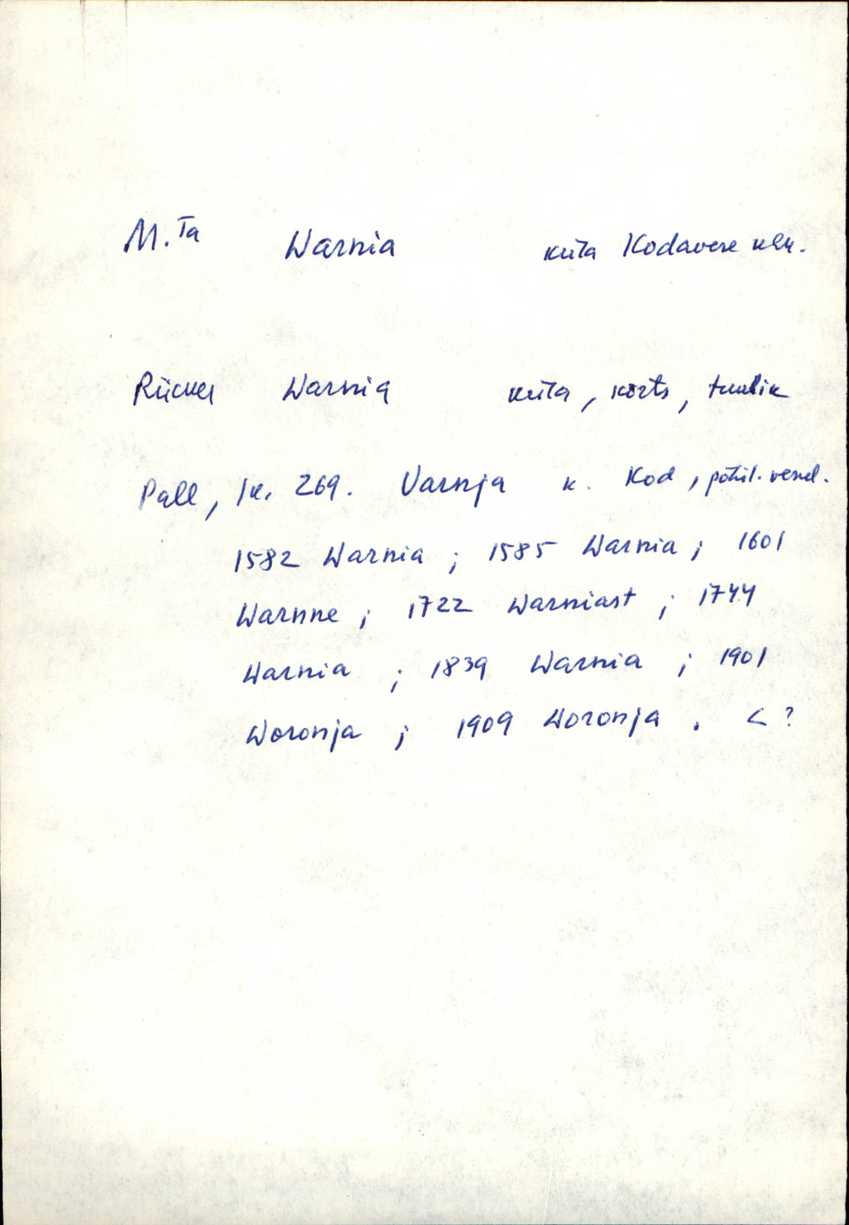 M.Ta Warnia küla Kodavere khk.
Rücker Warnia küla, kõrts, tuulik
Pall, lk. 269. Varnja k. Kod, põhil. vend.
1582 Warnia ; 1585 Warnia ; 1601
Warnne ; 1722 Warniast ; 1744
Warnia ; 1839 Warnia ; 1901
Woronja ; 1909 Woronja . < ?